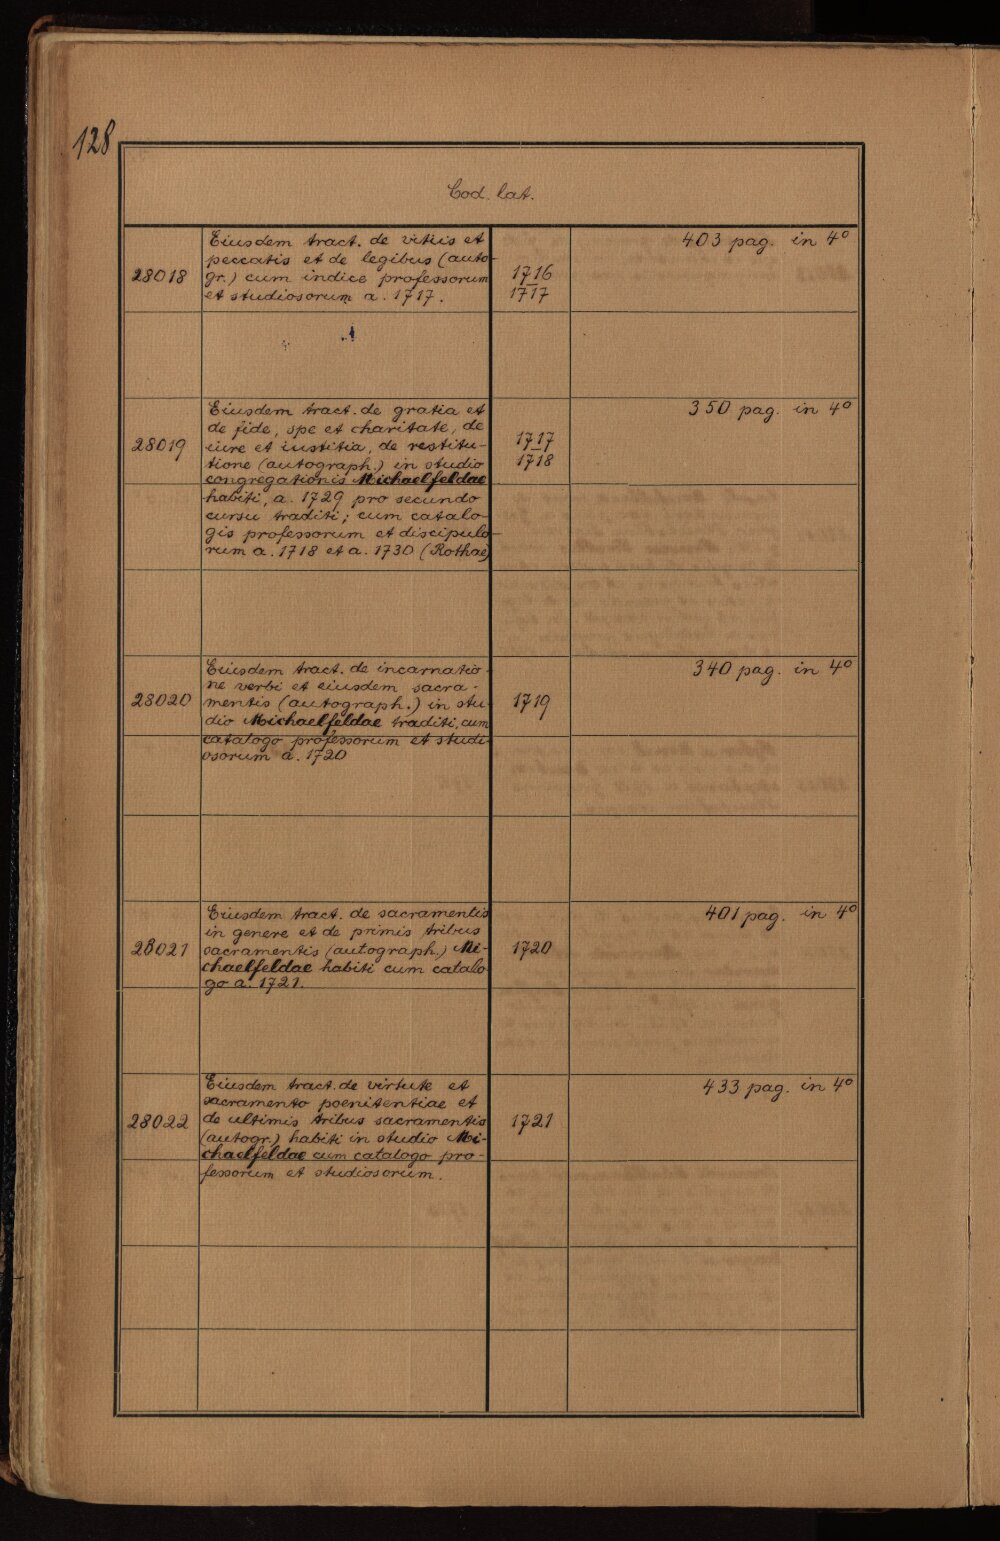 128
Cod. lat.
28018
Eiusdem tract. de vitiis et
peccatis et de legibus (auto-
gr.) cum indice professorum
et studiosorum a. 1717.
1716
1717
403 pag. in 4°
28019
Eiusdem tract. de gratia et
de fide, spe et charitate, de
iure et iustitia, de restitu-
tione (autograph.) in studio
congregationis Michaelfeldae
habiti, a. 1729 pro secundo
cursu traditi; cum catalo-
gis professorum et discipulo-
rum a. 1718 et a. 1730 (Rothae)
1717
1718
350 pag. in 4°
28020
Eiusdem tract. de incarnatio-
ne verbi et eiusdem sacra-
mentis (autograph.) in stu-
dio Michaelfeldae traditi, cum
catalogo professorum et studi-
osorum a. 1720
1719
340 pag. in 4°
28021
Eiusdem tract. de sacramentis
in genere et de primis tribus
sacramentis (autograph.) Mi-
chaelfeldae habiti cum catalo-
go a. 1721.
1720
401 pag. in 4°
28022
Eiusdem tract. de virtute et
sacramento poenitentiae et
de ultimis tribus sacramentis
(autogr.) habiti in studio Mi-
chaelfeldae cum catalogo pro-
fessorum et studiosorum.
1721
433 pag. in 4°